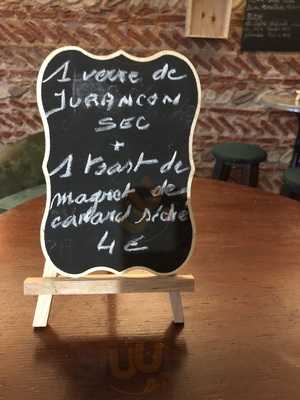 1 verre de
JURANCON
SEC
+
1 toast de
magret de
canard séché
4€